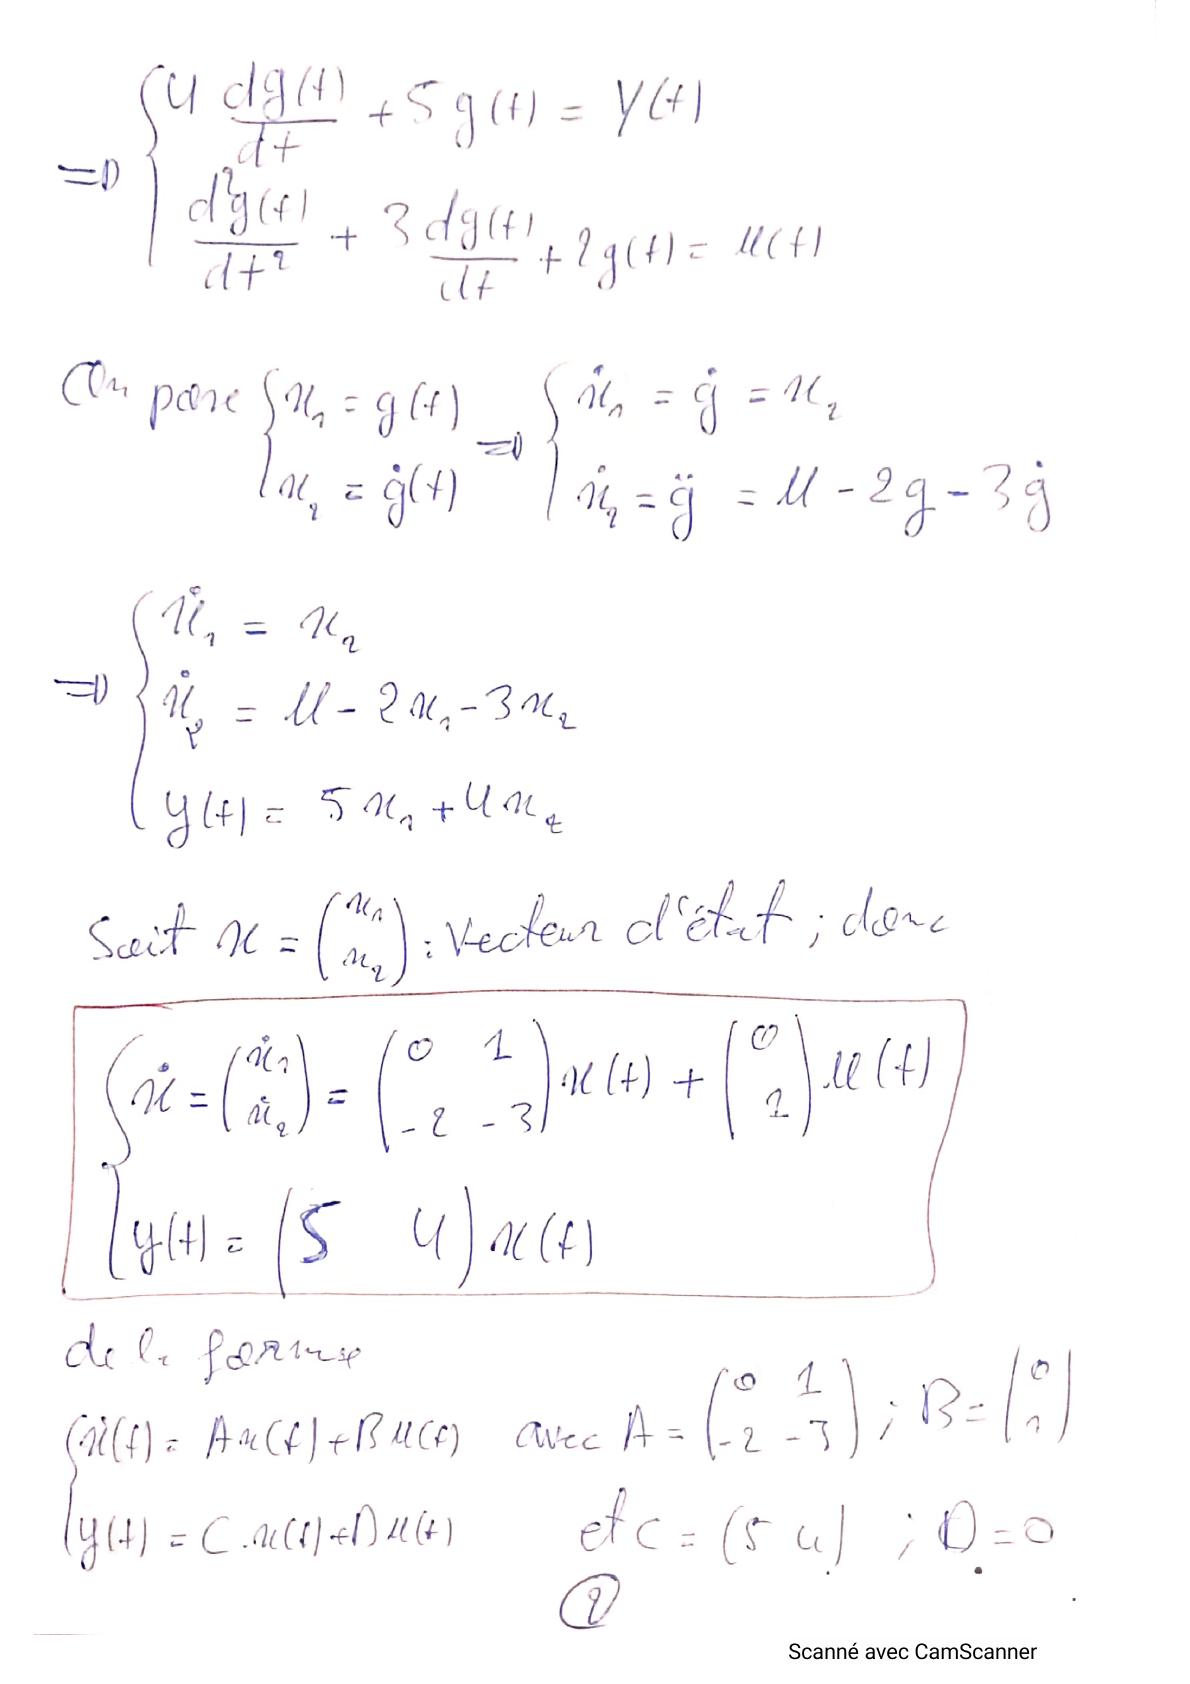 ⇒ { 4 dg(t)/dt + 5 g(t) = Y(t)
d²g(t)/dt² + 3 dg(t)/dt + 2g(t) = u(t)
On pose { x₁ = g(t) ⇒ { ẋ₁ = ġ = x₂
x₂ = ġ(t) ẋ₂ = g̈ = u - 2g - 3ġ
⇒ { ẋ₁ = x₂
ẋ₂ = u - 2x₁ - 3x₂
y(t) = 5x₁ + 4x₂
Soit x = (x₁ x₂) : Vecteur d'état ; donc
{ ẋ = (ẋ₁ ẋ₂) = (0 1 -2 -3) x(t) + (0 1) u(t)
y(t) = (5 4) x(t)
de la forme
{ ẋ(t) = Ax(t) + Bu(t) avec A = (0 1 -2 -3) ; B = (0 1)
y(t) = C.x(t) + Du(t) et C = (5 4) ; D = 0
2
Scanné avec CamScanner